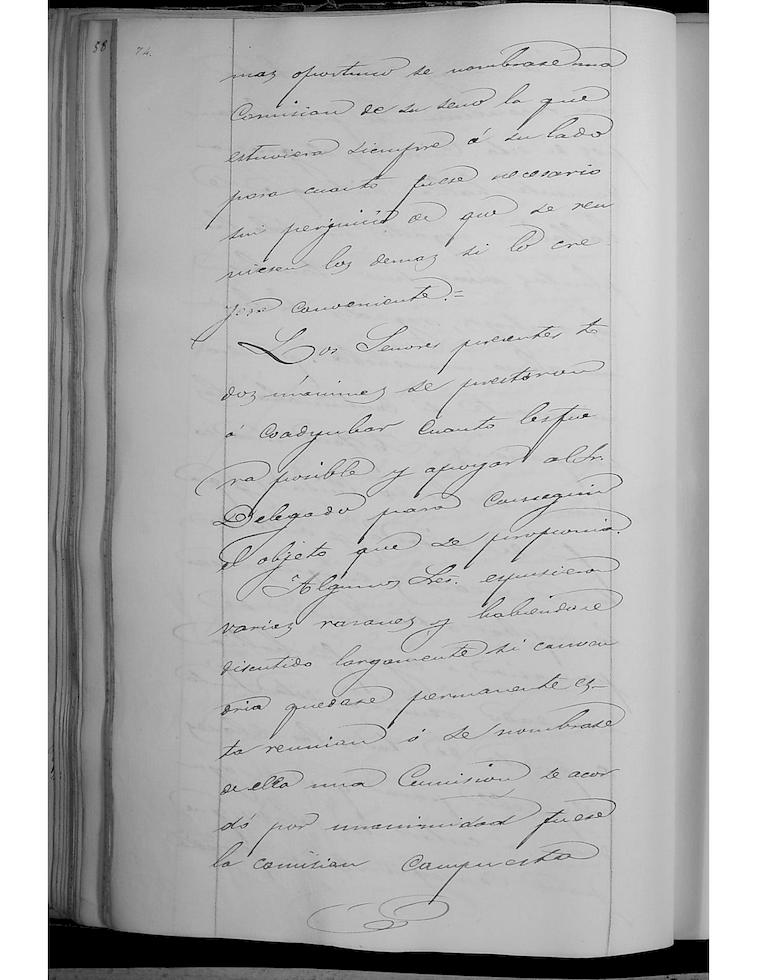 58
74.
mas oportuno se nombrase una
Comision de su seno la que
estuviera siempre á su lado
para cuanto fuese necesario
sin perjuicio de que se reu
niesen los demas si lo cre
yese conveniente.=
Los Senores presentes to
dos unanimes se prestaron
á coadyubar cuanto les fue
ra posible y apoyar al Sr.
Delegado para conseguir
el objeto que se proponia.
Algunos Sres. espusieron
varias razones y habiendose
discutido largamente si conven
dria quedase permanente es-
ta reunion ó se nombrase
de ella una Comision se acor
dó por unanimidad fuese
la comision compuesta